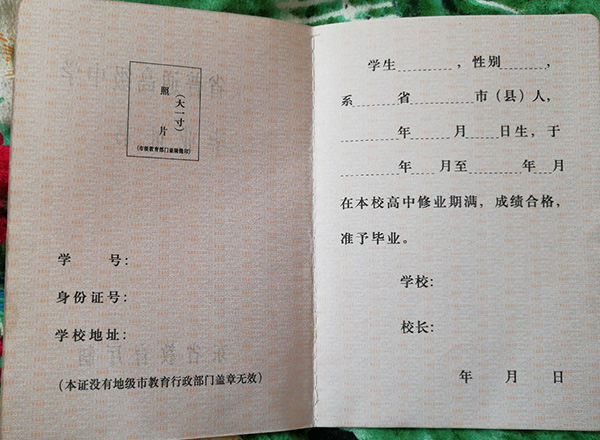 照 片
(大一寸)
(市级教育部门盖钢印)
学 号:
身份证号:
学校地址:
(本证没有地级市教育行政部门盖章无效)
学生 , 性别 ,
系 省 市(县)人,
年 月 日生, 于
年 月至 年 月
在本校高中修业期满, 成绩合格,
准予毕业。
学校:
校长:
年 月 日